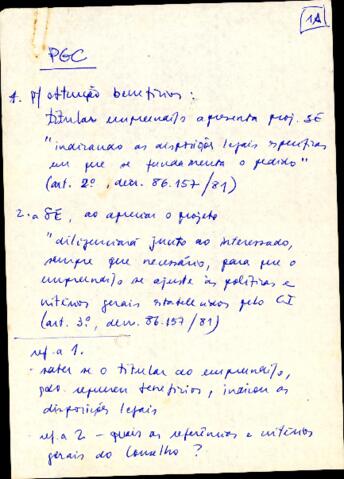 1A
PGC
1. P/ obtenção benefícios:
titular empreendi/o apresenta proj. SE
"indicando as disposições legais específicas
em que se fundamenta o pedido"
(art. 2º, decr. 86.157/81)
2. a SE, ao apreciar o projeto
"diligenciará junto ao interessado,
sempre que necessário, para que o
empreendi/o se ajuste às políticas e
critérios gerais estabelecidos pelo CI
(art. 3º, decr. 86.157/81)
ref. a 1.
- saber se o titular do empreendi/o,
qdo. requereu benefícios, indicou as
disposições legais
- ref. a 2 – quais as referências e critérios
gerais do Conselho?